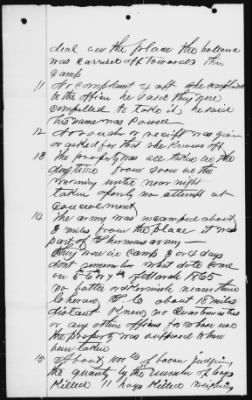 deal on the place the balance
was carried off towards the
camp
11 No complaint &c. she
to the officer he said they were
compelled to take it, he said
his name was
12 No voucher or receipt was given
or asked for that she knows of
13 The property was all taken in the
day time from soon in the
morning until near night
taken openly no attempt at
concealment
14 The army was encamped about
2 miles from the place it was
part of Shermans army—
they were in camp 3 or 4 days
dont remember what date came
on 5 6 or 7th of March 1865
no battle or skirmish nearer than
Cheraw S C about 18 miles
distant Knew no Quartermaster
or any other officer for whose use
the property was supposed to have
been taken
15 of about lbs of bacon judging
the quantity by the number of hogs
killed 11 hogs killed weighing